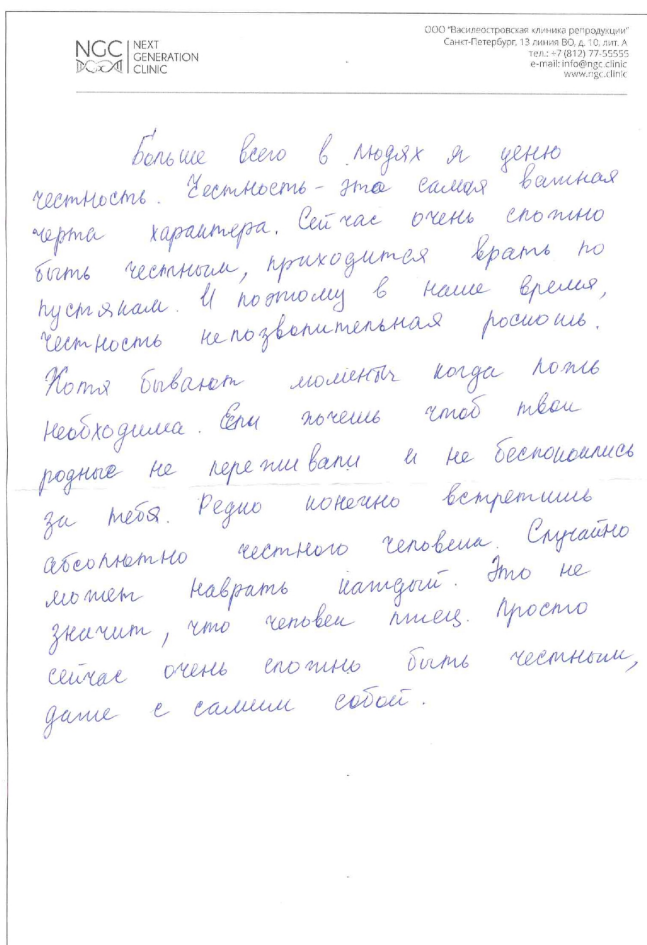 NGC
NEXT
GENERATION
CLINIC
ООО "Василеостровская клиника репродукции"
Санкт-Петербург, 13 линия ВО, д. 10, лит. А
тел.: +7 (812) 77-55555
e-mail: info@ngc.clinic
www.ngc.clinic
Больше всего в людях я ценю
честность. Честность - это самая важная
черта характера. Сейчас очень сложно
быть честным, приходится врать по
пустякам. И поэтому в наше время,
честность непозволительная роскошь.
Хотя бывают моменты когда ложь
необходима. Если хочешь чтоб твои
родные не переживали и не беспокоились
за тебя. Редко конечно встретишь
абсолютно честного человека. Случайно
может наврать каждый. Это не
значит, что человек лжец. Просто
сейчас очень сложно быть честным,
даже с самим собой.